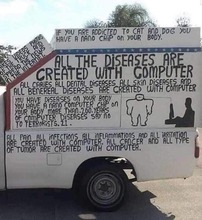 IF YOU ARE ADDICTED TO CAT AND DOG YOU
HAVE A NANO CHIP ON YOUR BODY.
ALL THE DISEASES ARE
CREATED WITH COMPUTER
ALL CANCER ALL DENTAL DISEASES ALL SKIN DISEASES AND
ALL BENEREAL DISEASES ARE CREATED WITH COMPUTER
YOU HAVE DISEASES
YOU HAVE A NANO COMPUTER CHIP ON
YOUR BODY MORE THAN
OF COMPUTER DISEASES SAY NO
TO
ALL PAIN ALL INFECTIONS ALL INFLAMMATIONS AND ALL IRRITATION
ARE CREATED WITH COMPUTER. ALL CANCER AND ALL TYPE
OF TUMOR ARE CREATED WITH COMPUTER.